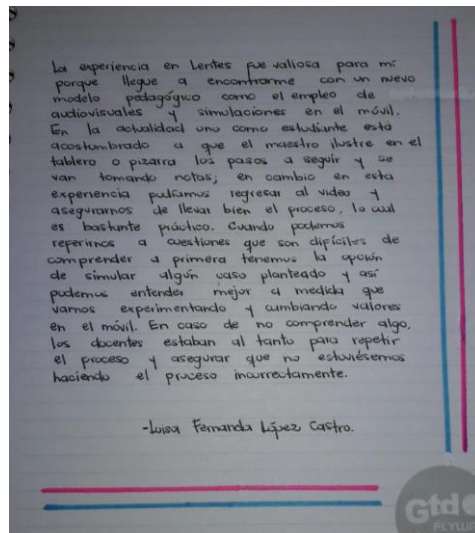 La experiencia en Lentes fue valiosa para mí
porque llegue a encontrarme con un nuevo
modelo pedagógico como el empleo de
audiovisuales y simulaciones en el móvil.
En la actualidad uno como estudiante está
acostumbrado a que el maestro ilustre en el
tablero o pizarra los pasos a seguir y se
van tomando notas; en cambio en esta
experiencia pudíamos regresar al video y
asegurarnos de llevar bien el proceso, lo cual
es bastante práctico. Cuando podemos
referirnos a cuestiones que son difíciles de
comprender a primera tenemos la opción
de simular algún caso planteado y así
podemos entender mejor a medida que
vamos experimentando y cambiando valores
en el móvil. En caso de no comprender algo,
los docentes estaban al tanto para repetir
el proceso y asegurar que no estuviésemos
haciendo el proceso incorrectamente.
-Luisa Fernanda López Castro.
Gtd